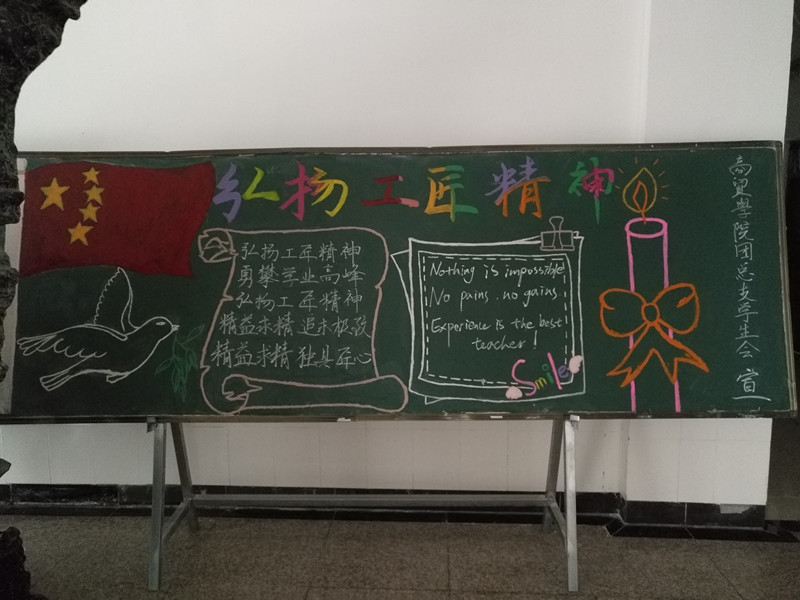 弘扬工匠精神
弘扬工匠精神
勇攀学业高峰
弘扬工匠精神
精益求精 追求极致
精益求精 独具匠心
Nothing is impossible
No pains . no gains
Experience is the best
teacher !
Smile
学院团总支学生会 宣